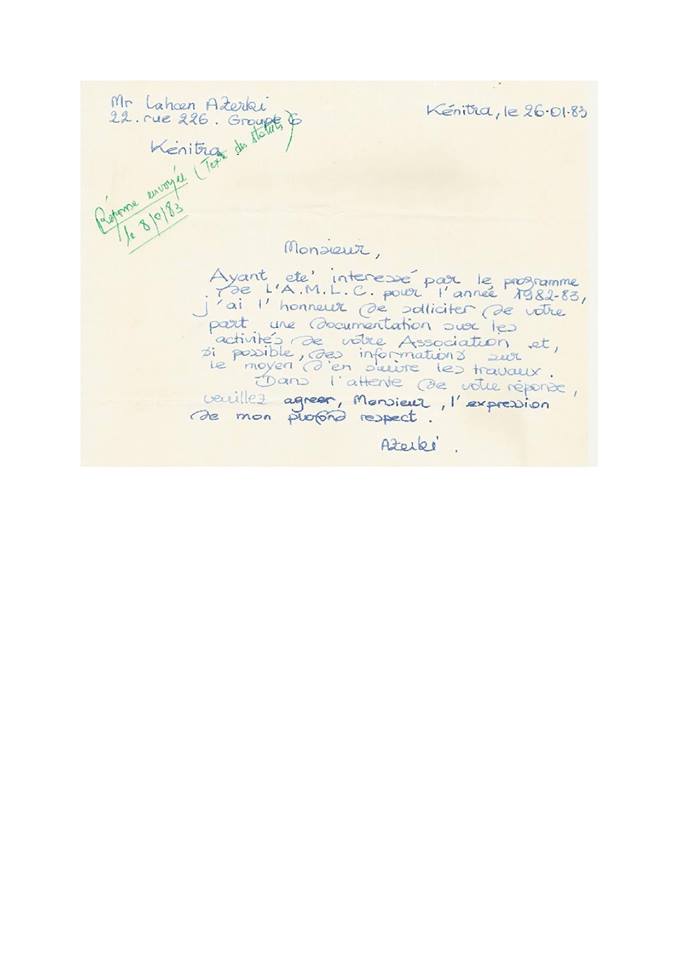 Mr Lahcen AZerki
22. rue 226. Groupe 6
Kénitra
Kénitra, le 26-01-83
Réponse envoyée (Texte des statuts)
le 8/0/83
Monsieur,
Ayant eté interessé par le programme
de L'A.M.L.C. pour l'année 1982-83,
j'ai l'honneur de solliciter de votre
part une documentation sur les
activités de votre Association et,
si possible, des informations sur
le moyen d'en suivre les travaux.
Dans l'attente de votre réponse,
veuillez agreer, Monsieur, l'expression
de mon profond respect.
AZerki.